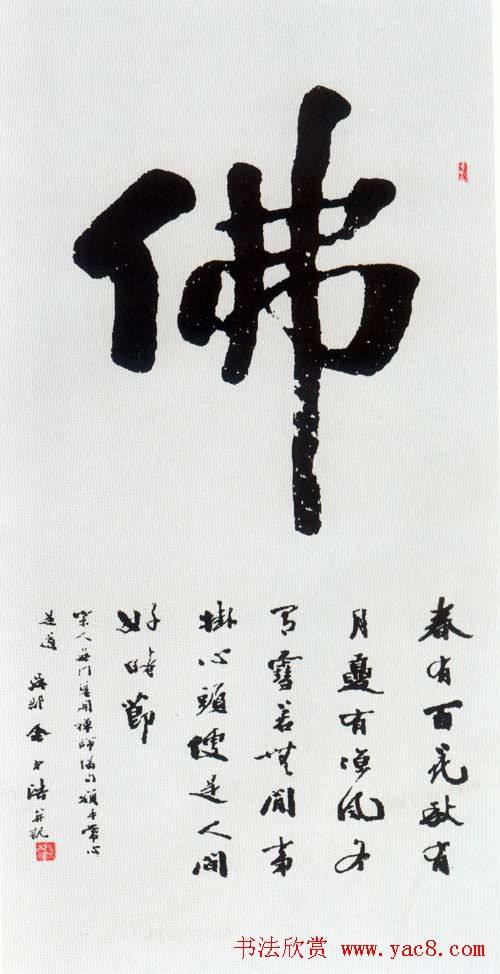 佛
春有百花秋有
月夏有凉风冬
有雪若無閒事
掛心頭便是人間
好時節
宋人無門慧開禪師偈句頌平常心
是道
书法欣赏 www.yac8.com